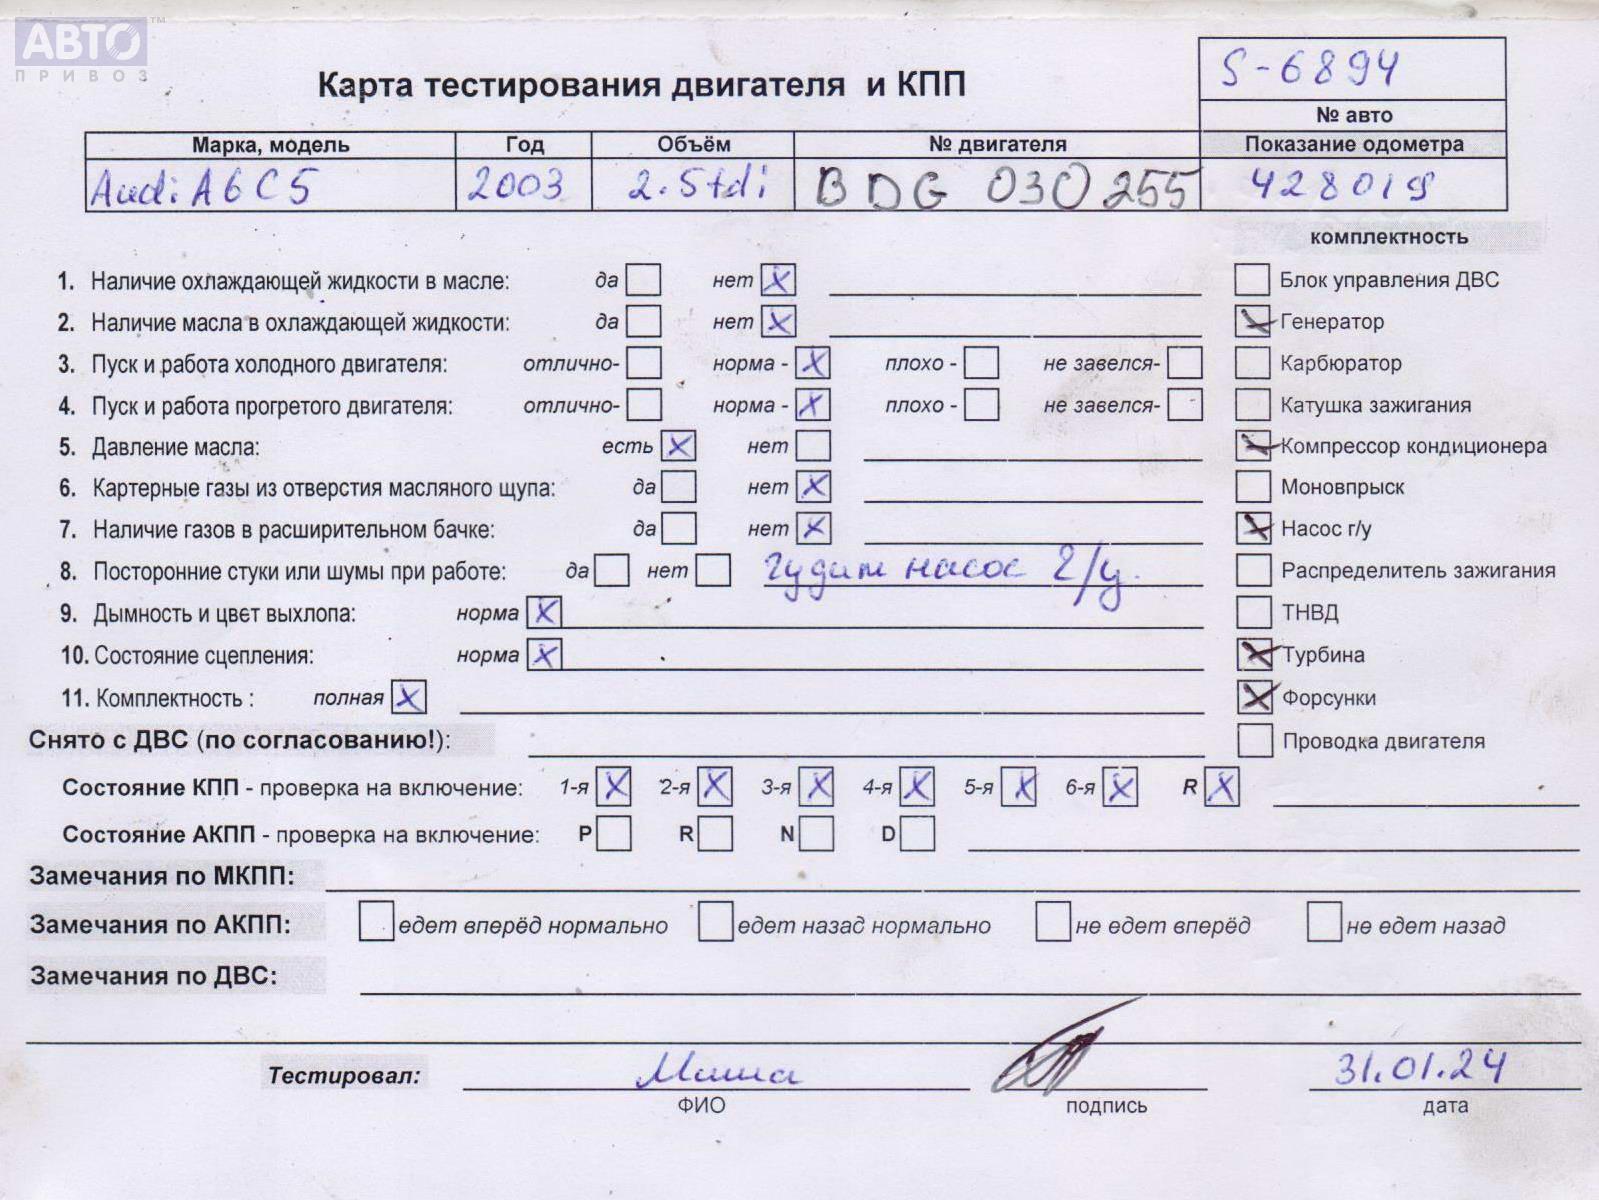 АВТО™
ПРИВОЗ
S-6894
Карта тестирования двигателя и КПП
№ авто
Марка, модель Год Объём № двигателя Показание одометра
Audi A6 C5 2003 2.5tdi BDG 030255 428019
комплектность
1. Наличие охлаждающей жидкости в масле: да нет X Блок управления ДВС
2. Наличие масла в охлаждающей жидкости: да нет X X Генератор
3. Пуск и работа холодного двигателя: отлично- норма - X плохо - не завелся- Карбюратор
4. Пуск и работа прогретого двигателя: отлично- норма - X плохо - не завелся- Катушка зажигания
5. Давление масла: есть X нет X Компрессор кондиционера
6. Картерные газы из отверстия масляного щупа: да нет X Моновпрыск
7. Наличие газов в расширительном бачке: да нет X X Насос г/у
8. Посторонние стуки или шумы при работе: да нет гудит насос г/у. Распределитель зажигания
9. Дымность и цвет выхлопа: норма X ТНВД
10. Состояние сцепления: норма X X Турбина
11. Комплектность : полная X X Форсунки
Снято с ДВС (по согласованию!): Проводка двигателя
Состояние КПП - проверка на включение: 1-я X 2-я X 3-я X 4-я X 5-я X 6-я X R X
Состояние АКПП - проверка на включение: P R N D
Замечания по МКПП:
Замечания по АКПП: едет вперёд нормально едет назад нормально не едет вперёд не едет назад
Замечания по ДВС:
Тестировал: Миша 31.01.24
ФИО подпись дата